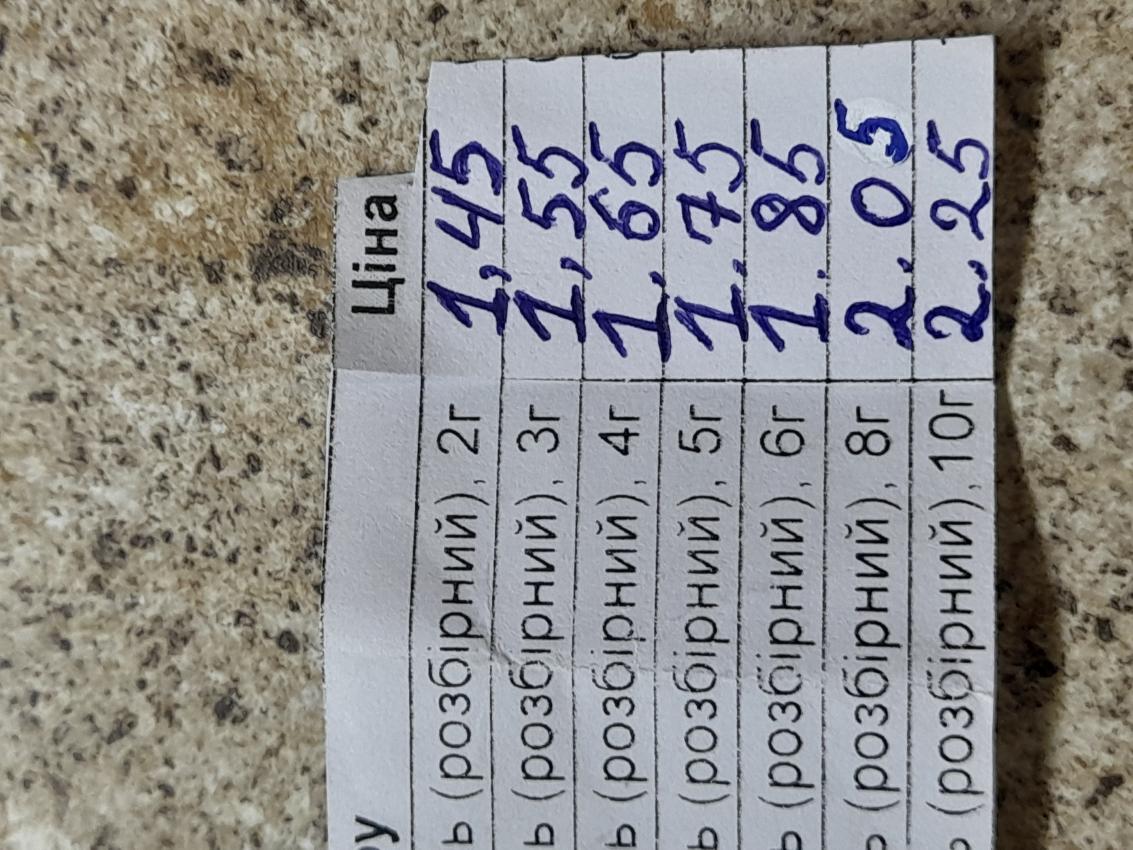 Ціна
ь (розбірний), 2г 1,45
ь (розбірний), 3г 1,55
ь (розбірний), 4г 1,65
ь (розбірний), 5г 1.75
ь (розбірний), 6г 1.85
ь (розбірний), 8г 2.05
ь (розбірний), 10г 2.25